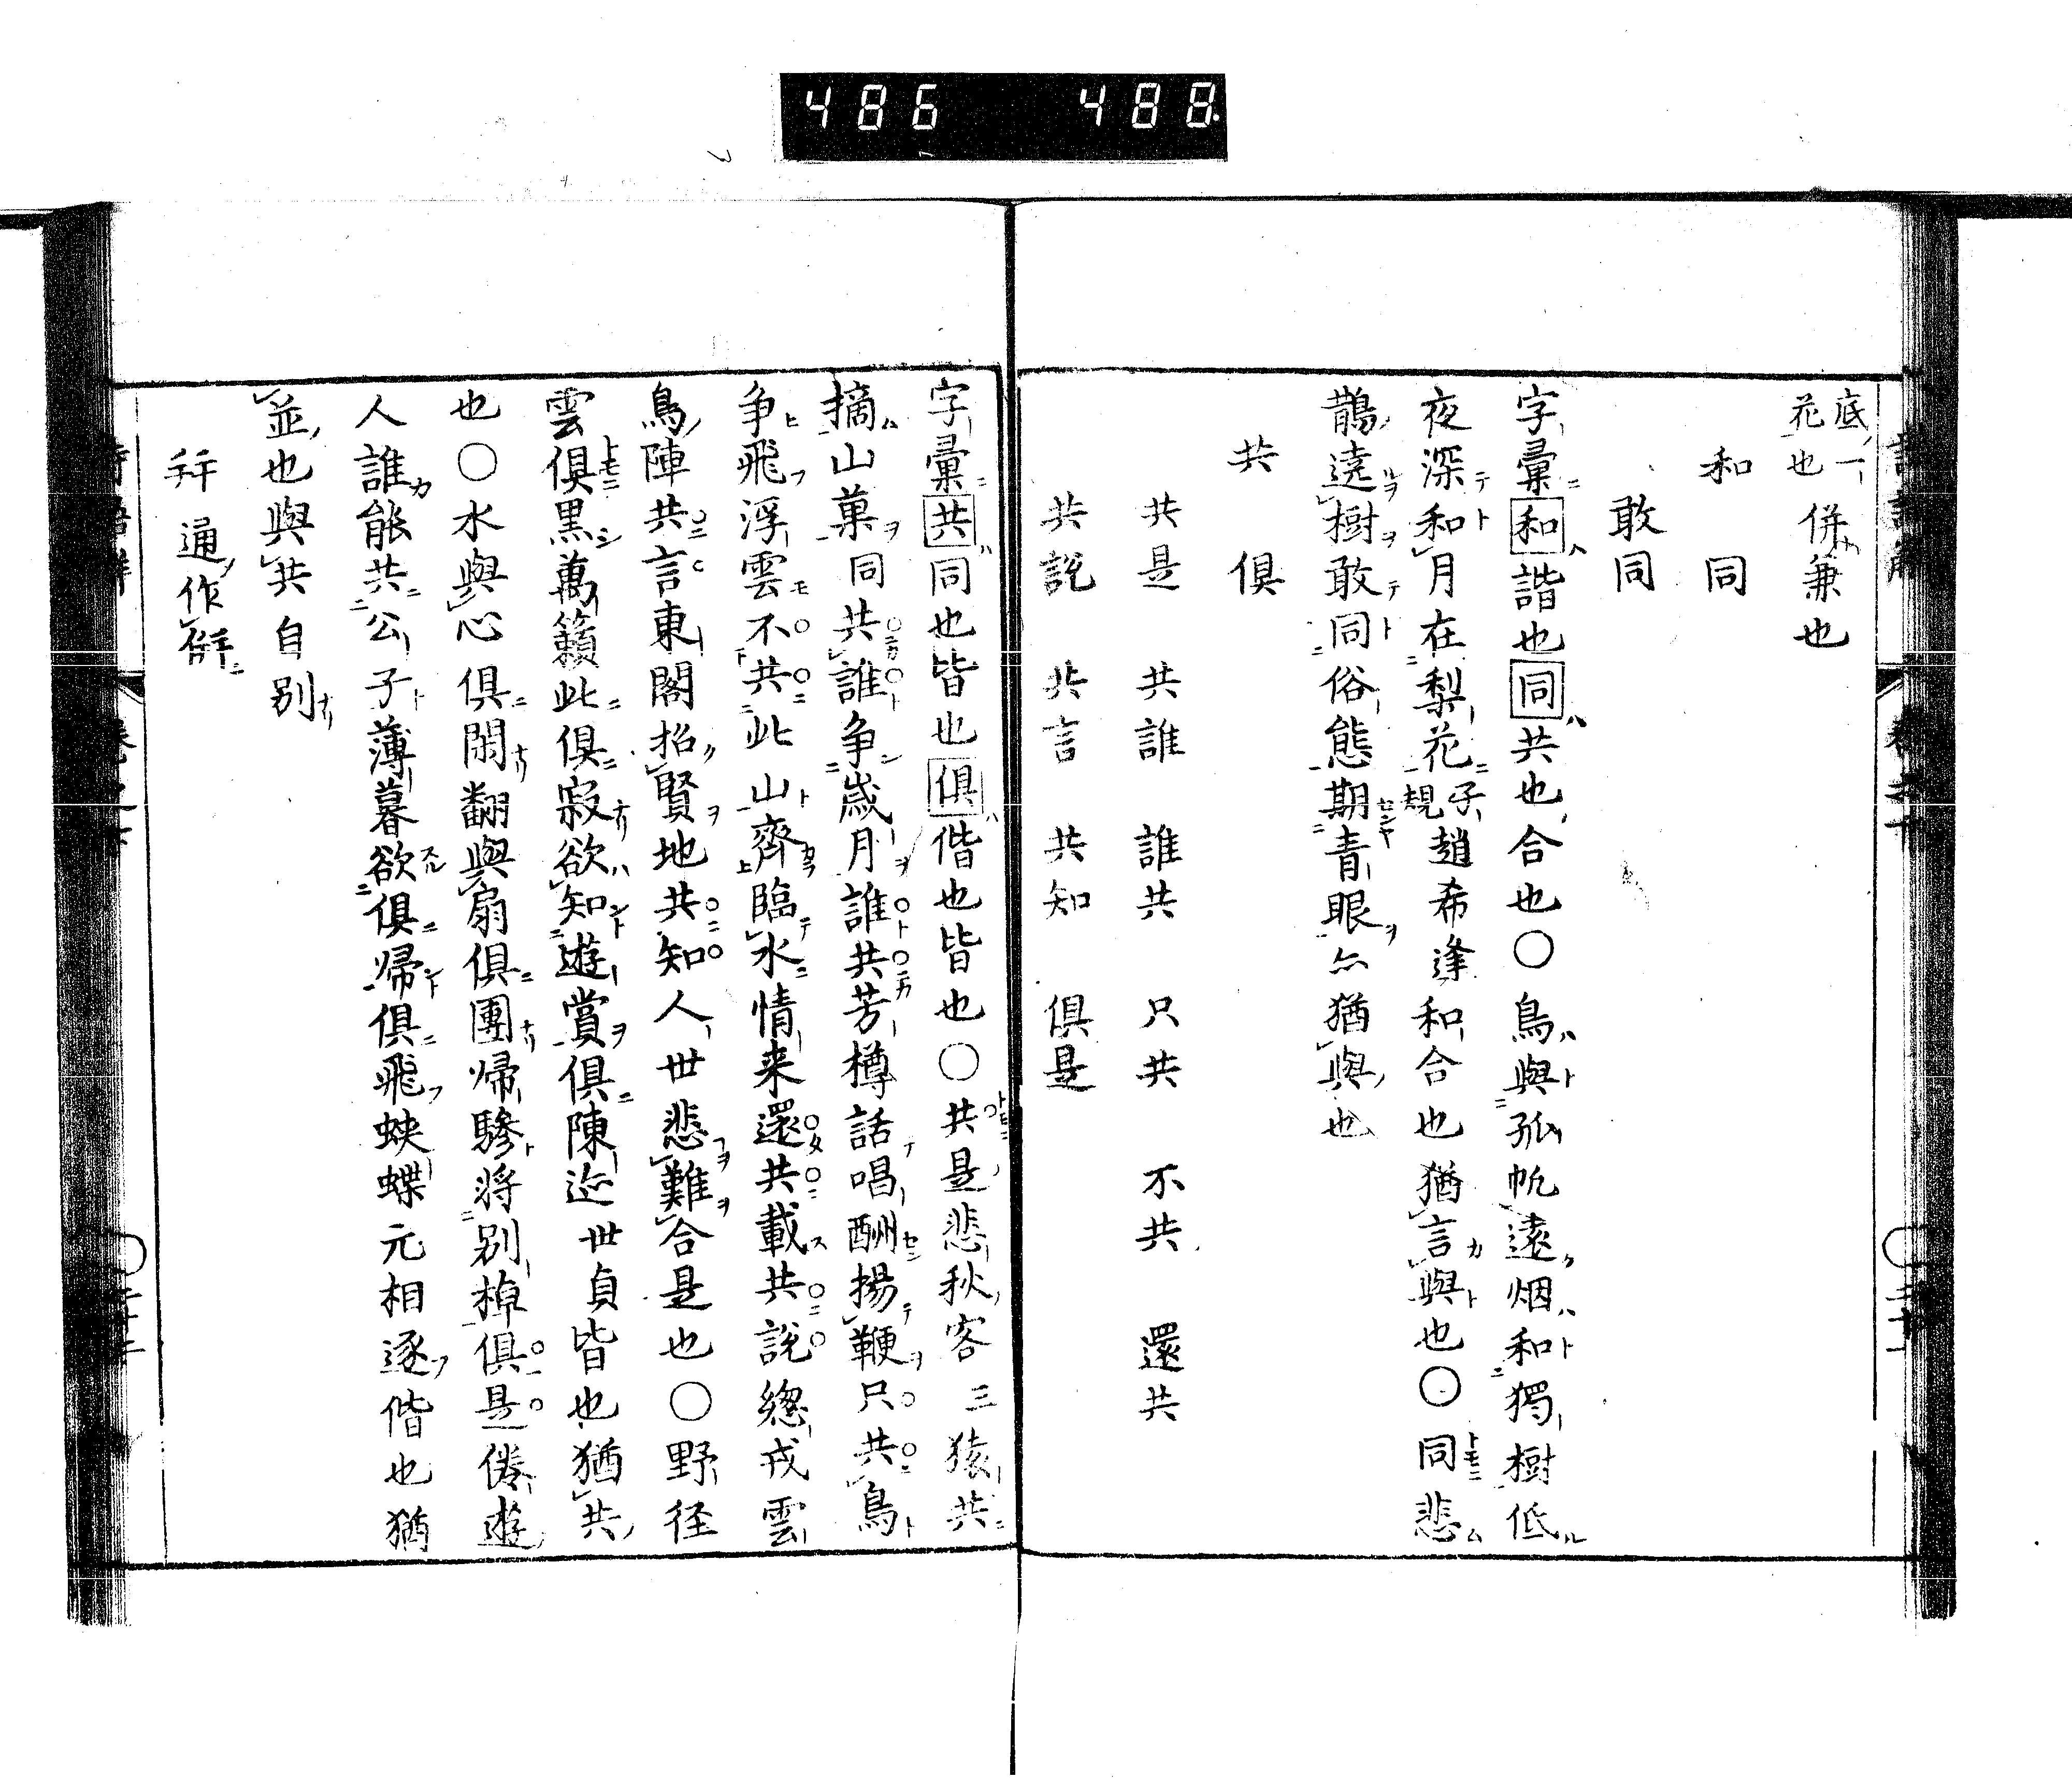 486 488
底一
花也
併兼也
和 同
敢同
字彙和諧也同共也合也〇鳥與孤帆遠烟和獨樹低
夜深和月在梨花子規趙希逢和合也猶言與也〇同悲
鵲遶樹敢同俗態期青眼亦猶與也
共 俱
共是 共誰 誰共 只共 不共 還共
共說 共言 共知 俱是
字彙共同也皆也俱偕也皆也〇共是悲秋客三猿共
摘山菓同共誰争歳月誰共芳樽話唱酬揚鞭只共鳥
争飛浮雲不共此山齊臨水情来還共載共說緫戎雲
鳥陣共言東閣招賢地共知人世悲難合是也〇野径
雲俱黒萬籟此俱寂欲知遊賞俱陳迹世貞皆也猶共
也〇水與心俱閑翻與扇俱團帰驂将别棹俱是倦遊
人誰能共公子薄暮欲俱帰俱飛蛺蝶元相逐偕也猶
並也與共自别
幷通作併